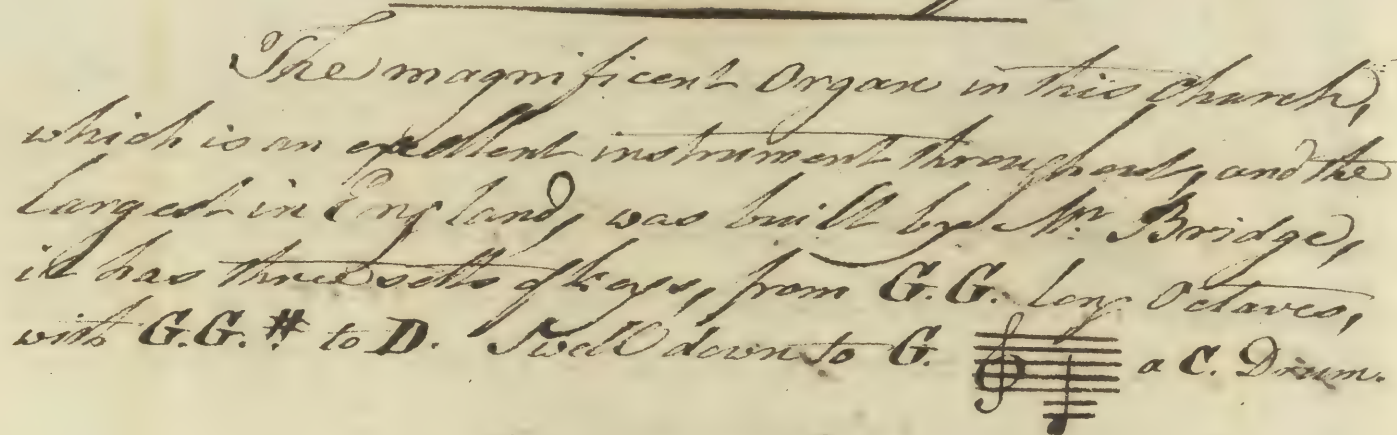 The magnificent Organ in this Church,
which is an excellent instrument throughout, and the
largest in England, was built by Mr. Bridge,
it has three setts of keys, from G.G. long Octaves,
with G.G.# to D. Swell down to G. a C. Drum.